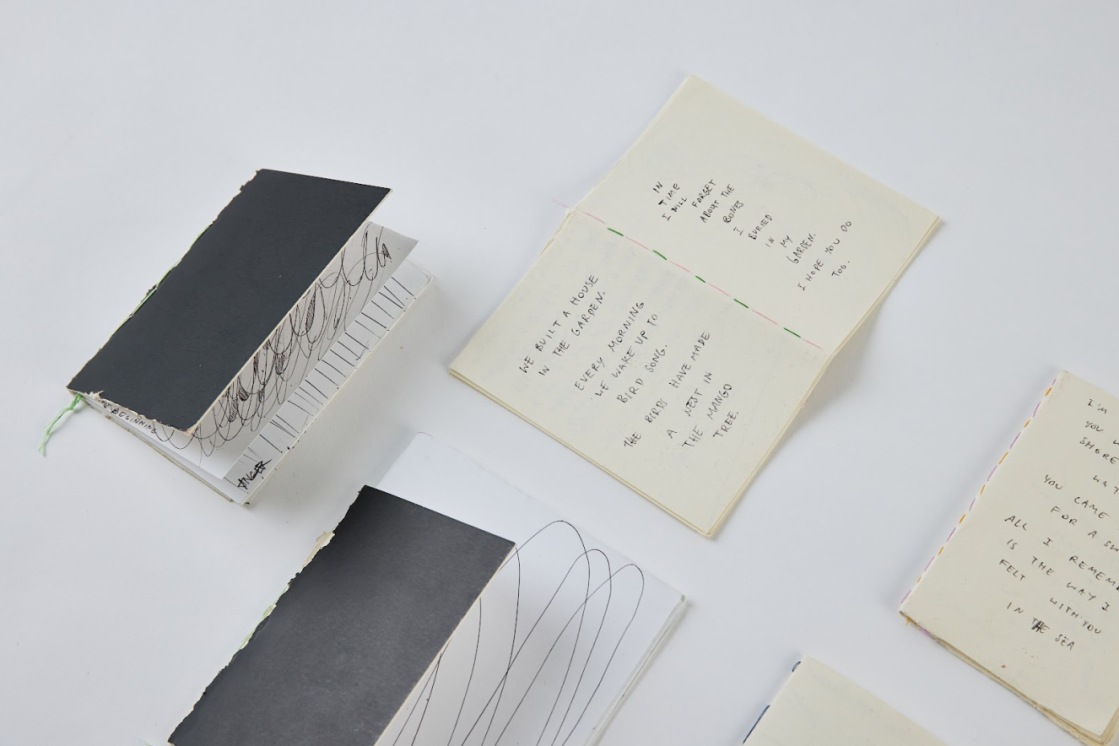 THE BEGINNING
ANGER
IN
TIME
I WILL
FORGET
ABOUT THE
BONES
I BURIED
IN
MY
GARDEN.
I HOPE YOU DO
TOO.
WE BUILT A HOUSE
IN THE GARDEN.
EVERY MORNING
WE WAKE UP TO
BIRD SONG.
THE BIRDS HAVE MADE
A NEST IN
THE MANGO
TREE.
I'M
YOU
SHORE
YOU CAME
FOR A
ALL I
IS THE WAY I
FELT WITH YOU
IN THE SEA